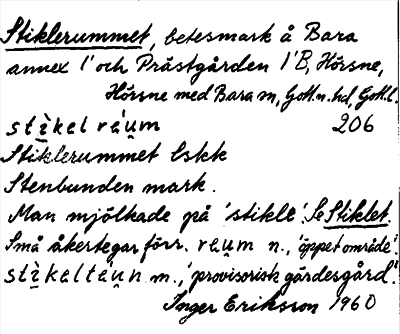 Stiklerummet, betesmark å Bara
annex 1' och Prästgården 1'B, Hörsne,
Hörsne med Bara sn, Gotl.n.hd, Gotl.l.
stì̢kel ráu̯m 206
Stiklerummet lskk
Stenbunden mark.
Man mjölkade på 'stikle'. Se Stiklet.
Små åkertegar förr. rau̯m n., 'öppet område'.
stì̢kaltáu̯n m., 'provisorisk gärdesgård'.
Inger Erikson 1960